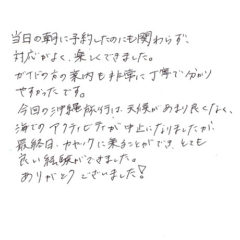 当日の朝に予約したのにも関わらず、
対応がよく、楽しくできました。
ガイドの方の案内も非常に丁寧で分かり
やすかったです。
今回の沖縄旅行は、天候があまり良くなく、
海でのアクティビティが中止になりましたが、
最終日、カヤックに乗ることができ、とても
良い経験ができました。
ありがとうございました!